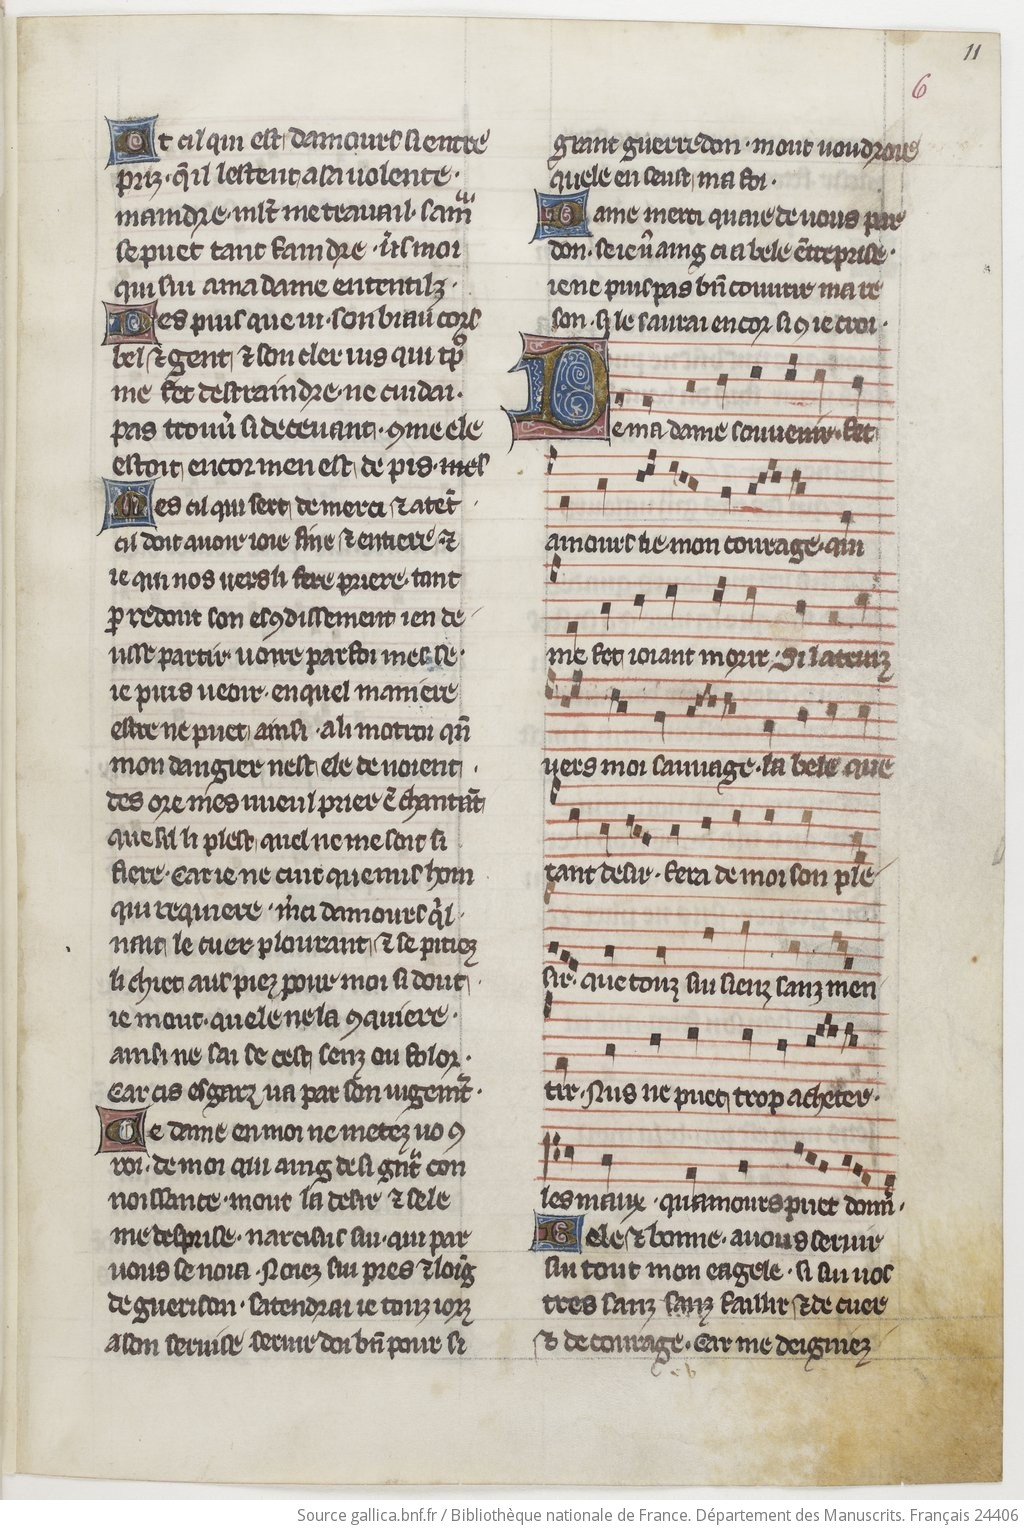 11
6
Et cil qui est damours si entre
priz · q̃il lestent a sa uolente ·
maindre · mlt me trauail · sam̃
se puet tant faindre · ũs moi
qui sui a ma dame ententilz ·
Des puis que ui · son biau cors
bel ⁊ gent ⁊ son cler uis qui tp̃
me fet destraindre · ne cuidai ·
pas trouũ si deceuant · ꝯme ele
estoit encor men est de pis · mes
Mes cil qui sert de merci ⁊ atet̃
cil doit auoir ioie fine ⁊ entiere · ⁊
ie qui nos uers li fere priere · tant
ꝑ redout son esꝯdissement ien de
usse partir uoire par foi mes se ·
ie puis ueoir · en quel maniere
estre ne puet ainsi · a li motroi qñ
mon dangier nest ele de noient ·
des ore mes uueul prier ẽ chantãt
que sil li plest quel ne me soit si
fiere · Car ie ne cuit que nus hom
qui requiere · m̃ci damours q̃l ·
nait le cuer plourant ⁊ se pitiez
li chiet aus piez pour moi si dout
ie mout · quele ne la ꝯquiere ·
ainsi ne sai se cest senz ou folor ·
Car cis esgarz ua par son uigem̃t ·
De dame en moi ne metez uo ꝯ
roi · de moi qui aing de si gñt con
noissance · mout la desir ⁊ se le
me desprise · narcisus sui · qui par
uous se noia · Noiez sui pres ⁊ loig̃
de guerison · satendrai ie touz iorz
a son seruise seruir doi bñ pour si
grant guerredon · mout uoudroie
quele en seust ma foi ·
Dame merci quaie de uous par
don · se ie ũ aing ci a bele ẽtreprise ·
ie ne puis pas bñ couurir ma re
son · si le saurai encor si ꝯ ie croi ·
De ma dame souuenir · fet
amours lie mon courage · qui
me fet ioiant morir · Si la truiz
uers moi sauuage · la bele que
tant desir · fera de moi son ple
sir · que touz sui sienz sanz men
tir · Nus ne puet trop acheter ·
les maux · quamours puet doner̃ ·
Bele ⁊ bonne · a uous seruir
sui tout mon eagele · si sui uos
tres sanz sanz faillir ⁊ de cuer
⁊ de courage · Car me deigniez
Source gallica.bnf.fr / Bibliothèque nationale de France. Département des Manuscrits. Français 24406